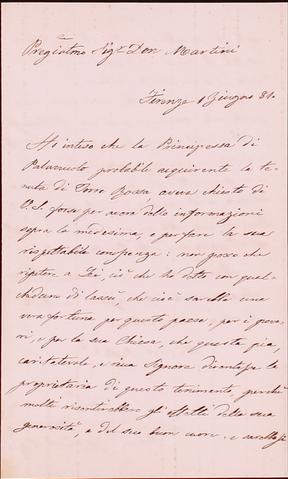 Pregiatmo Sigr Don Martini
Firenze 1 Giugno 81.
Ho inteso che la Principessa di
probabile acquirente la te-
nuta di Torre Rossa, aveva chiesto di
V.S. forse per avere delle informazioni
sopra la medesima, e per fare la sua
rispettabile conoscenza: non posso che
ripetere a Lei, ciò che ho detto con qual-
cheduno di lassù, che cioè sarebbe una
vera fortuna per questo paese, per i pove-
ri, e per la sua Chiesa, che questa pia,
caritatevole, e ricca Signora diventasse la
proprietaria di questo tenimento, perchè
molti risentirebbero gli effetti della sua
generosità, e del suo buon cuore, e sarebbe